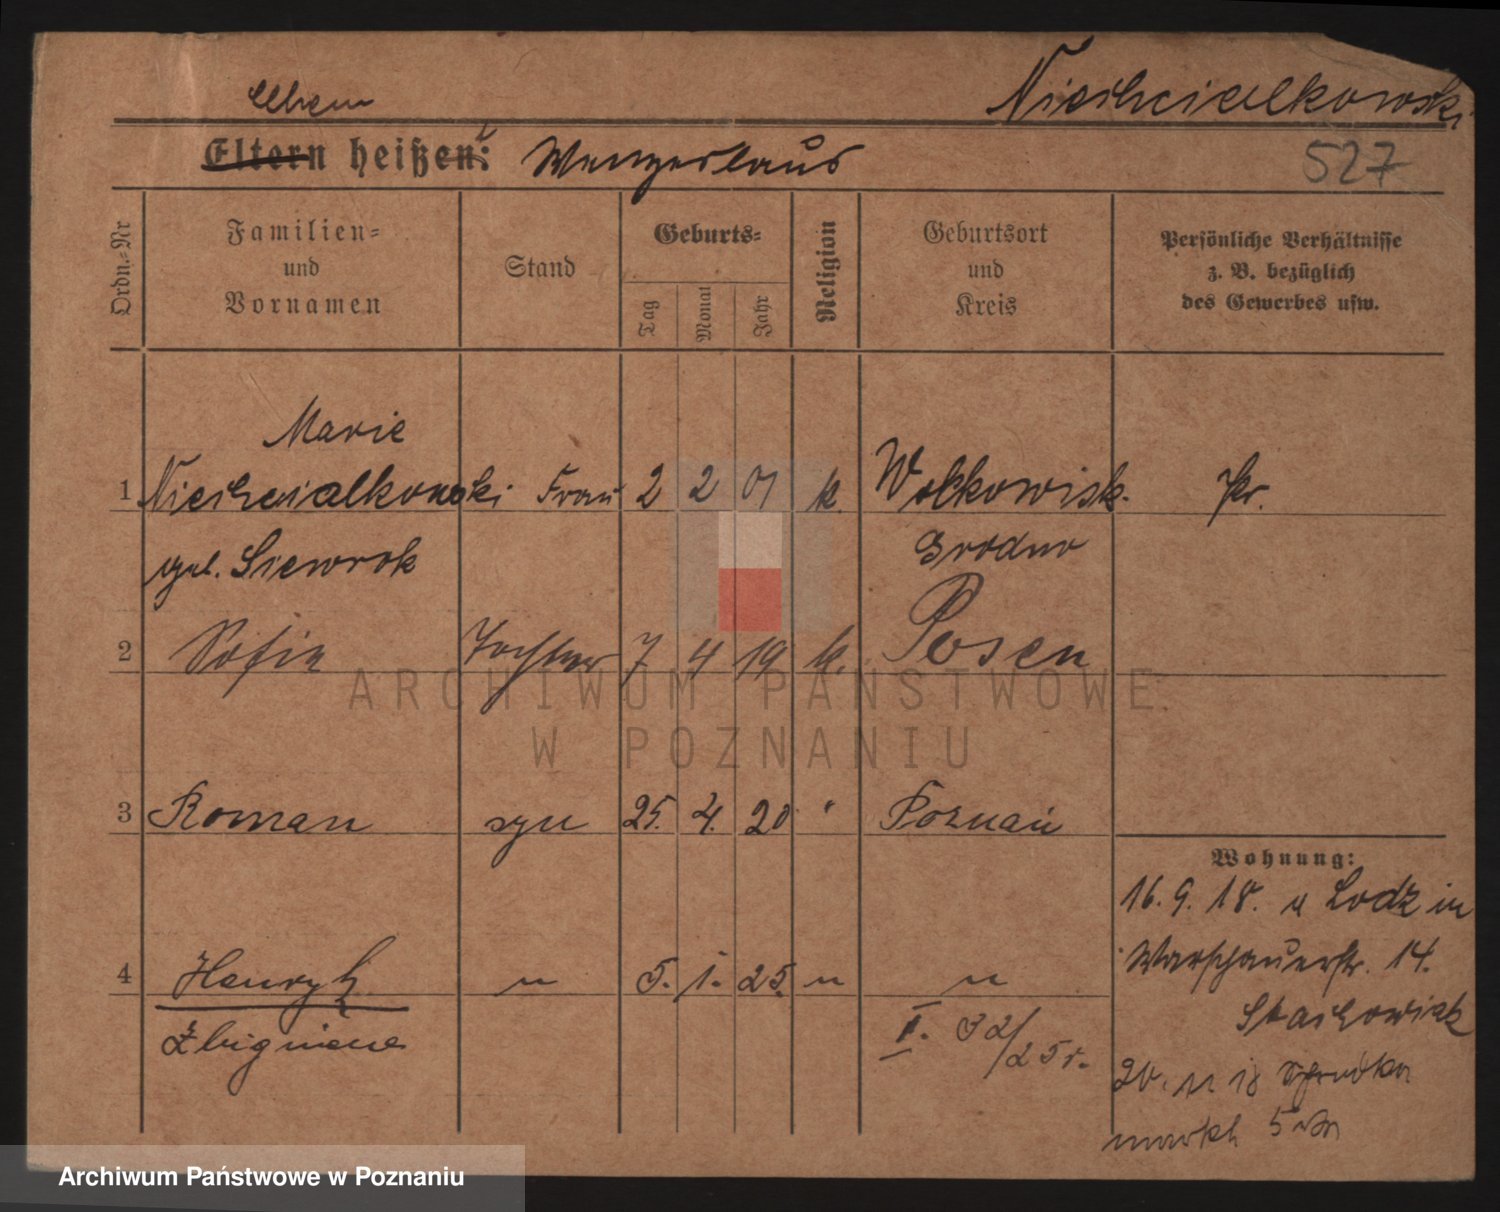 Niescicialkowski
Ehem
Eltern heißen: Wenzeslaus
527
Ordn.-Nr
Familien-
und
Vornamen
Stand
Geburts-
Tag
Monat
Jahr
Religion
Geburtsort
und
Kreis
Persönliche Verhältnisse
z. B. bezüglich
des Gewerbes usw.
Marie
1 Niescicialkowski Frau 2 2 01 k. Wolkowisk. Pr.
geb. Siewrok Grodno
2 Sofia Tochter 7 4 19 k. Posen
ARCHIWUM PAŃSTWOWE
W POZNANIU
3 Roman syn 25. 4. 20 " Poznań
Wohnung:
16. 9. 18. Lodz in
Warschauerstr. 14.
4 Henryk " 5. 1. 25. " "
Stachowiak
Zbigniew
I. 32/25 r.
20. 11 18
markt 5
Archiwum Państwowe w Poznaniu